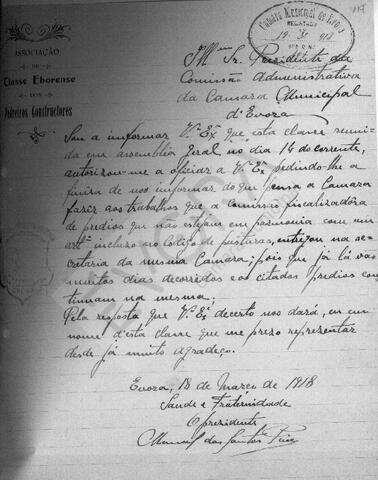 117
ASSOCIAÇÃO
DE
Classe Eborense
DOS
Pedreiros Constructores
Camara Municipal de Evora
19 1918
Sr. Presidente da
Comissão Administrativa
da Camara Municipal
d'Evora
Sou a informar V.ª Ex.ª que esta classe reuni-
da em assembleia geral no dia 14 do corrente,
autorizou-me a oficiar a V.ª Ex.ª pedindo-lhe a
fineza de nos informar do que pensa a Camara
fazer aos trabalhos que a comissão fiscalizadora
de predios que não estejam em harmonia com um
art.º incluso no codigo de posturas, entregou na se-
cretaria da mesma Camara; pois que já lá vão
muitos dias decorridos e os citados predios con-
tinuam na mesma;
Pela resposta que V.ª Ex.ª decerto nos dará, eu em
nome d'esta classe que me prezo representar
desde já muito agradeço.
Evora, 18 de Março de 1918
Saude e Fraternidade
O presidente
Manuel dos Santos